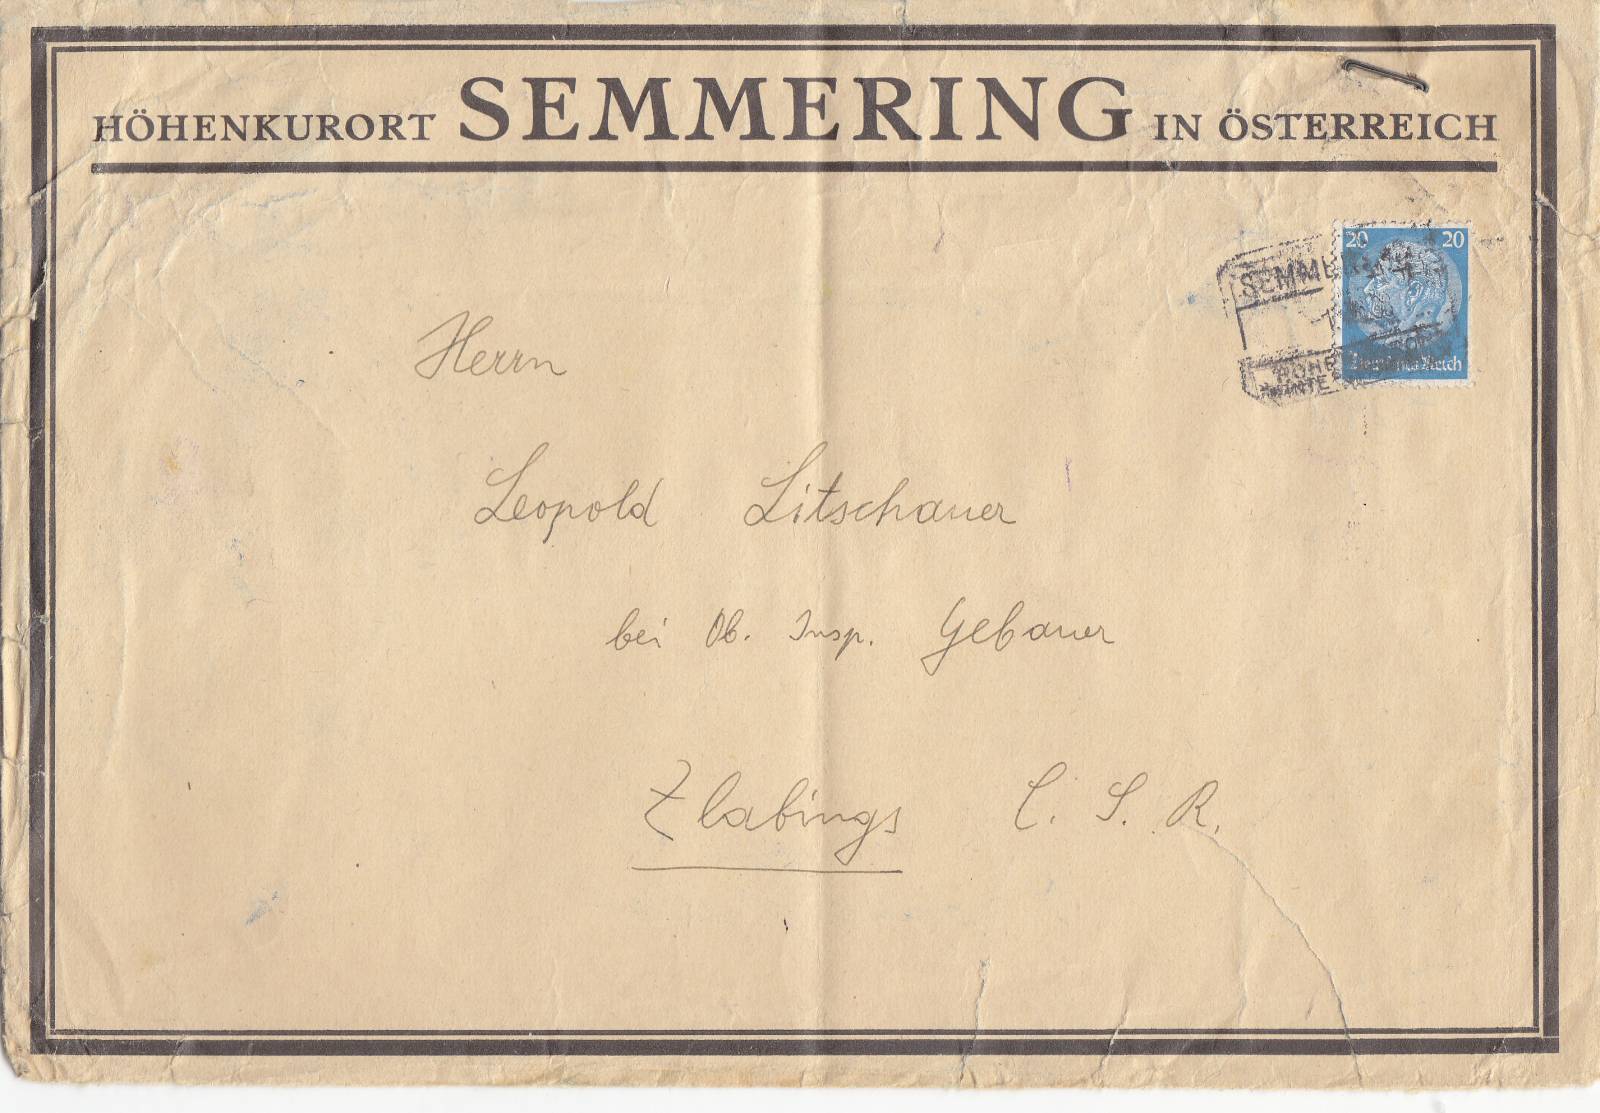 HÖHENKURORT SEMMERING IN ÖSTERREICH
20 20
Deutsches Reich
Herrn
Leopold Litschauer
bei Ob. Insp. Gebauer
Zlabings C. S. R.